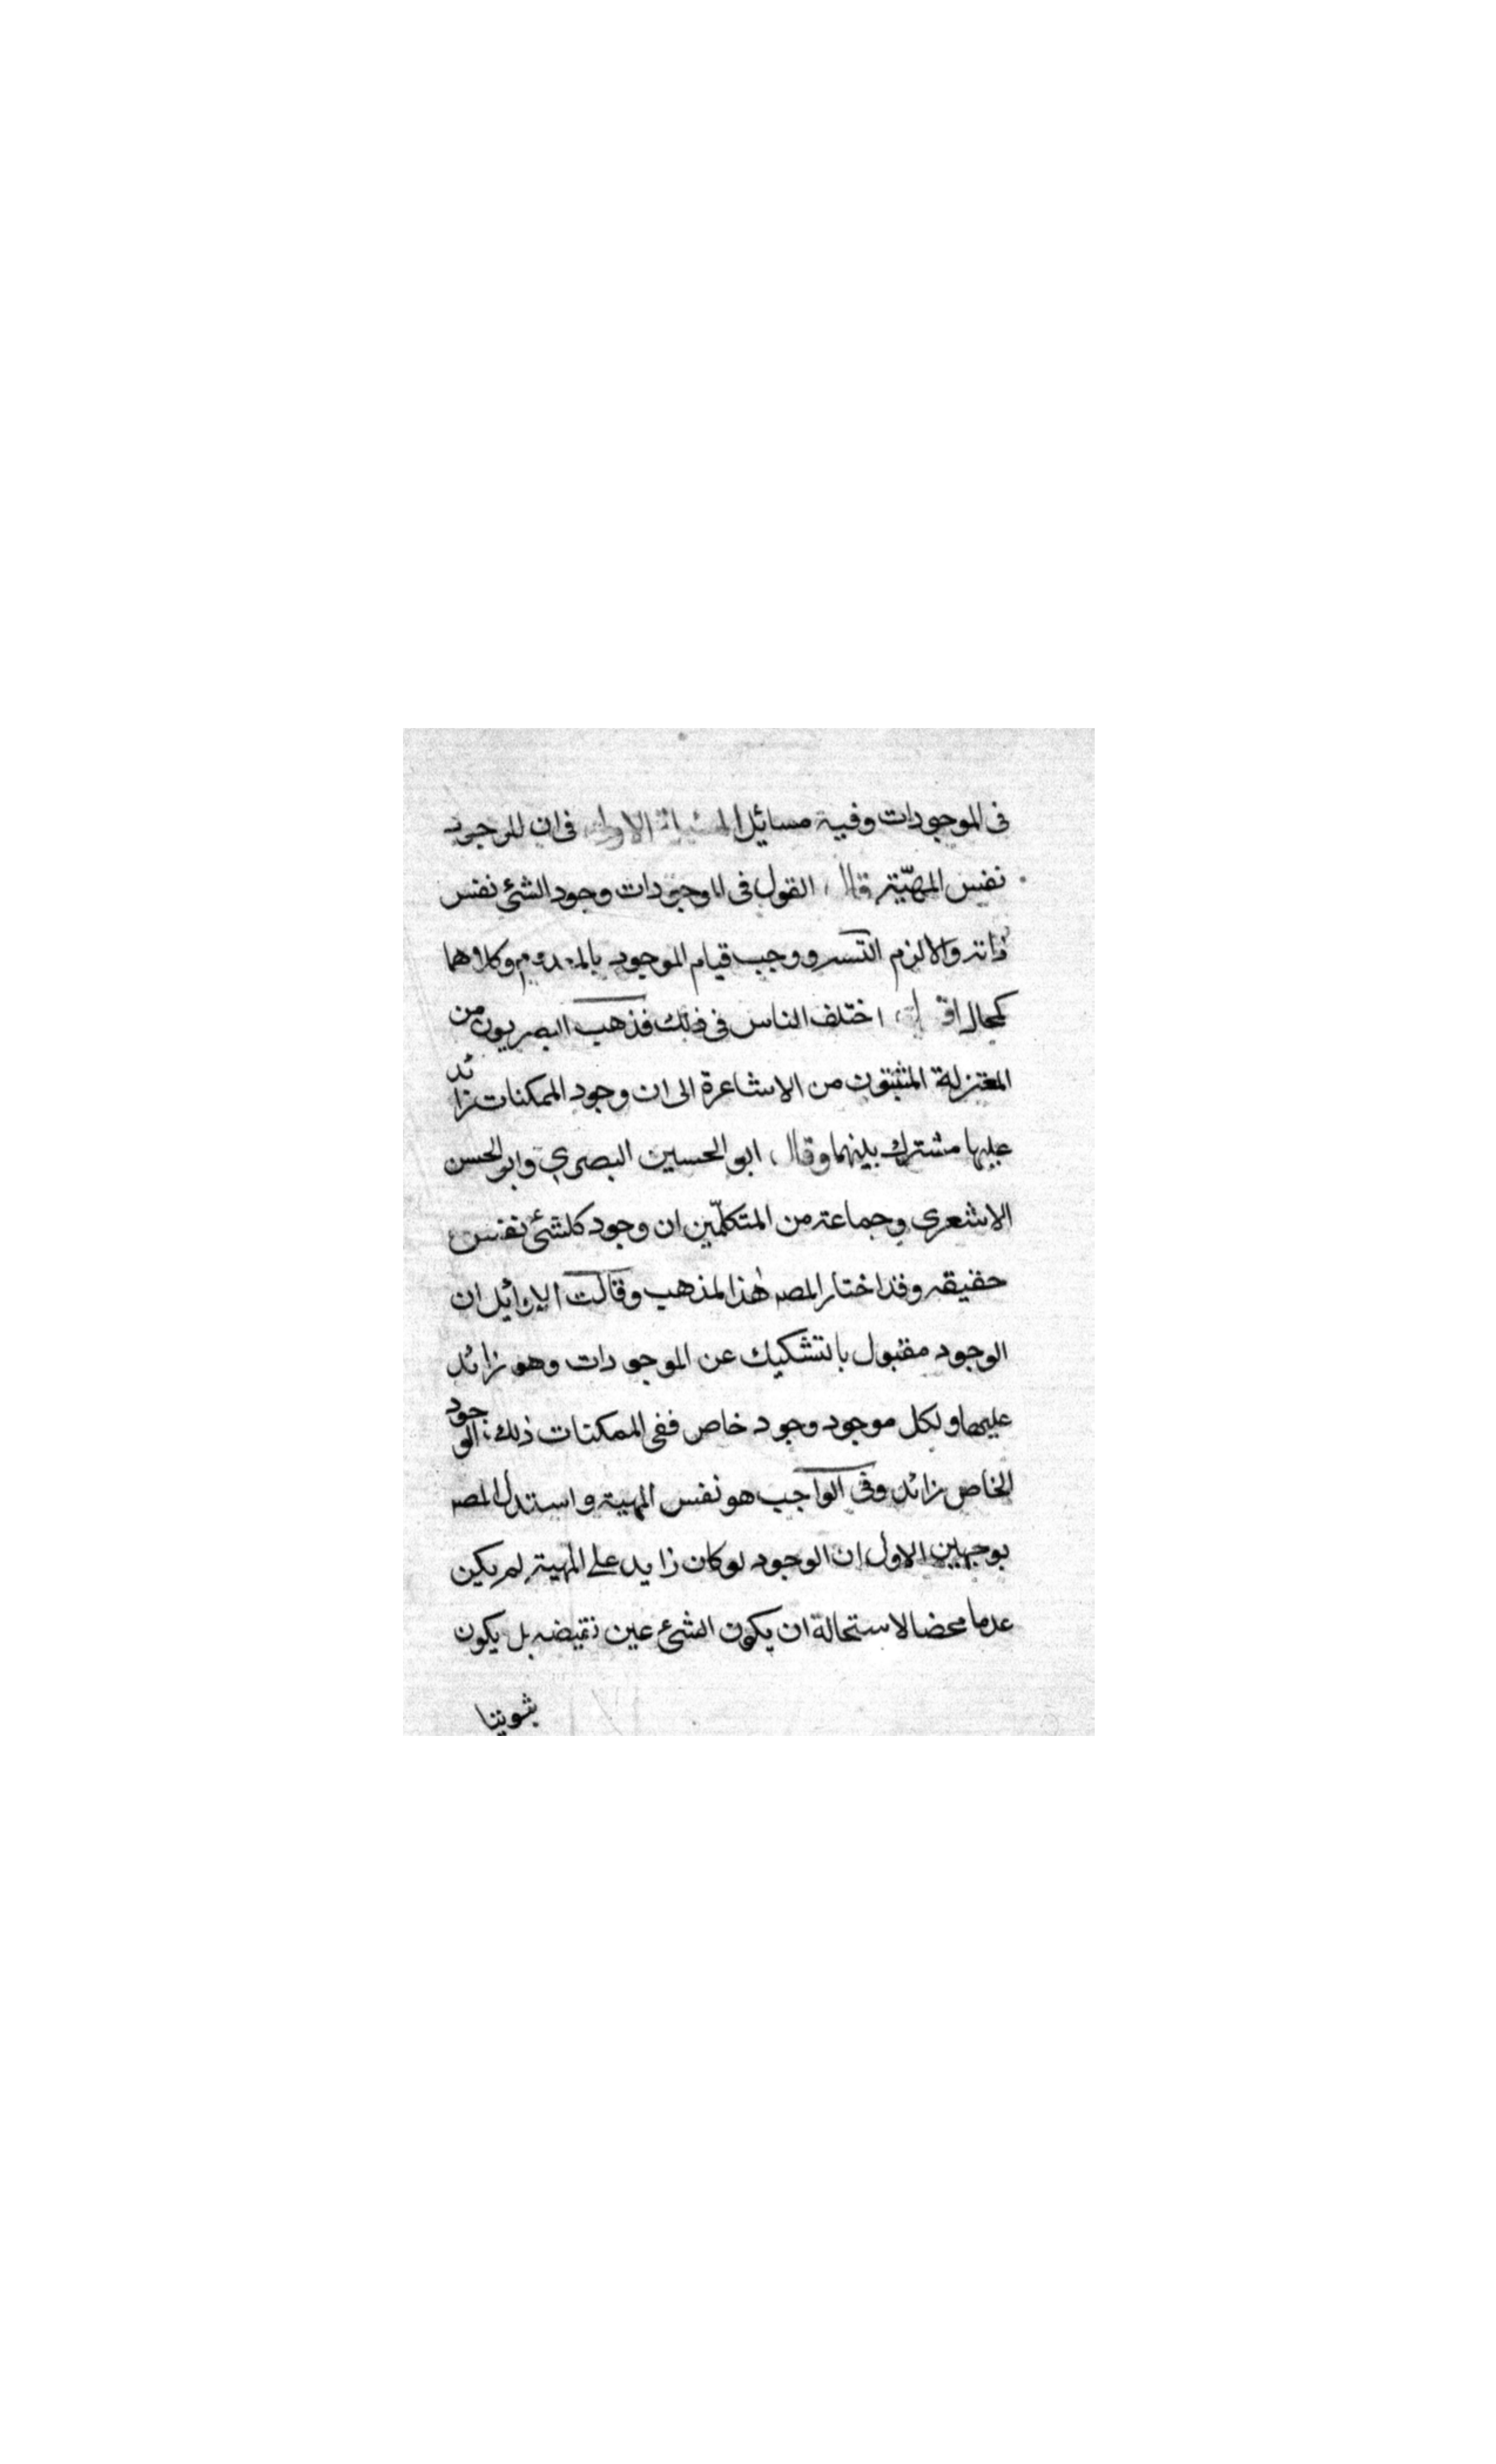 فى الموجودات وفيه مسائل المسئلة الاولى فى ان الوجود
نفس المهيّة قال القول فى الموجودات وجود الشئ نفس
ذاته والا لزم التسـ ووجب قيام الموجود بالمعدوم وكلاهما
محال اقول اختلف الناس فى ذلك فذهب البصريون من
المعتزلة المثبتون من الاشاعرة الى ان وجود الممكنات زائد
عليها مشترك بينهما وقال ابو الحسين البصرى وابو الحسن
الاشعرى وجماعة من المتكلّمين ان وجود كلشئ نفس
حقيقه وقد اختار المصه هذا المذهب وقالت الاوائل ان
الوجود مقبول بالتشكيك عن الموجودات وهو زائد
عليها ولكل موجود وجود خاص ففى الممكنات ذلك الوجود
الخاص زائد وفى الواجب هو نفس المهية واستدل المصه
بوجهين الاول ان الوجود لو كان زايد على المهية لم يكن
عدما محضا لاستحالة ان يكون الشئ عين نقيضه بل يكون